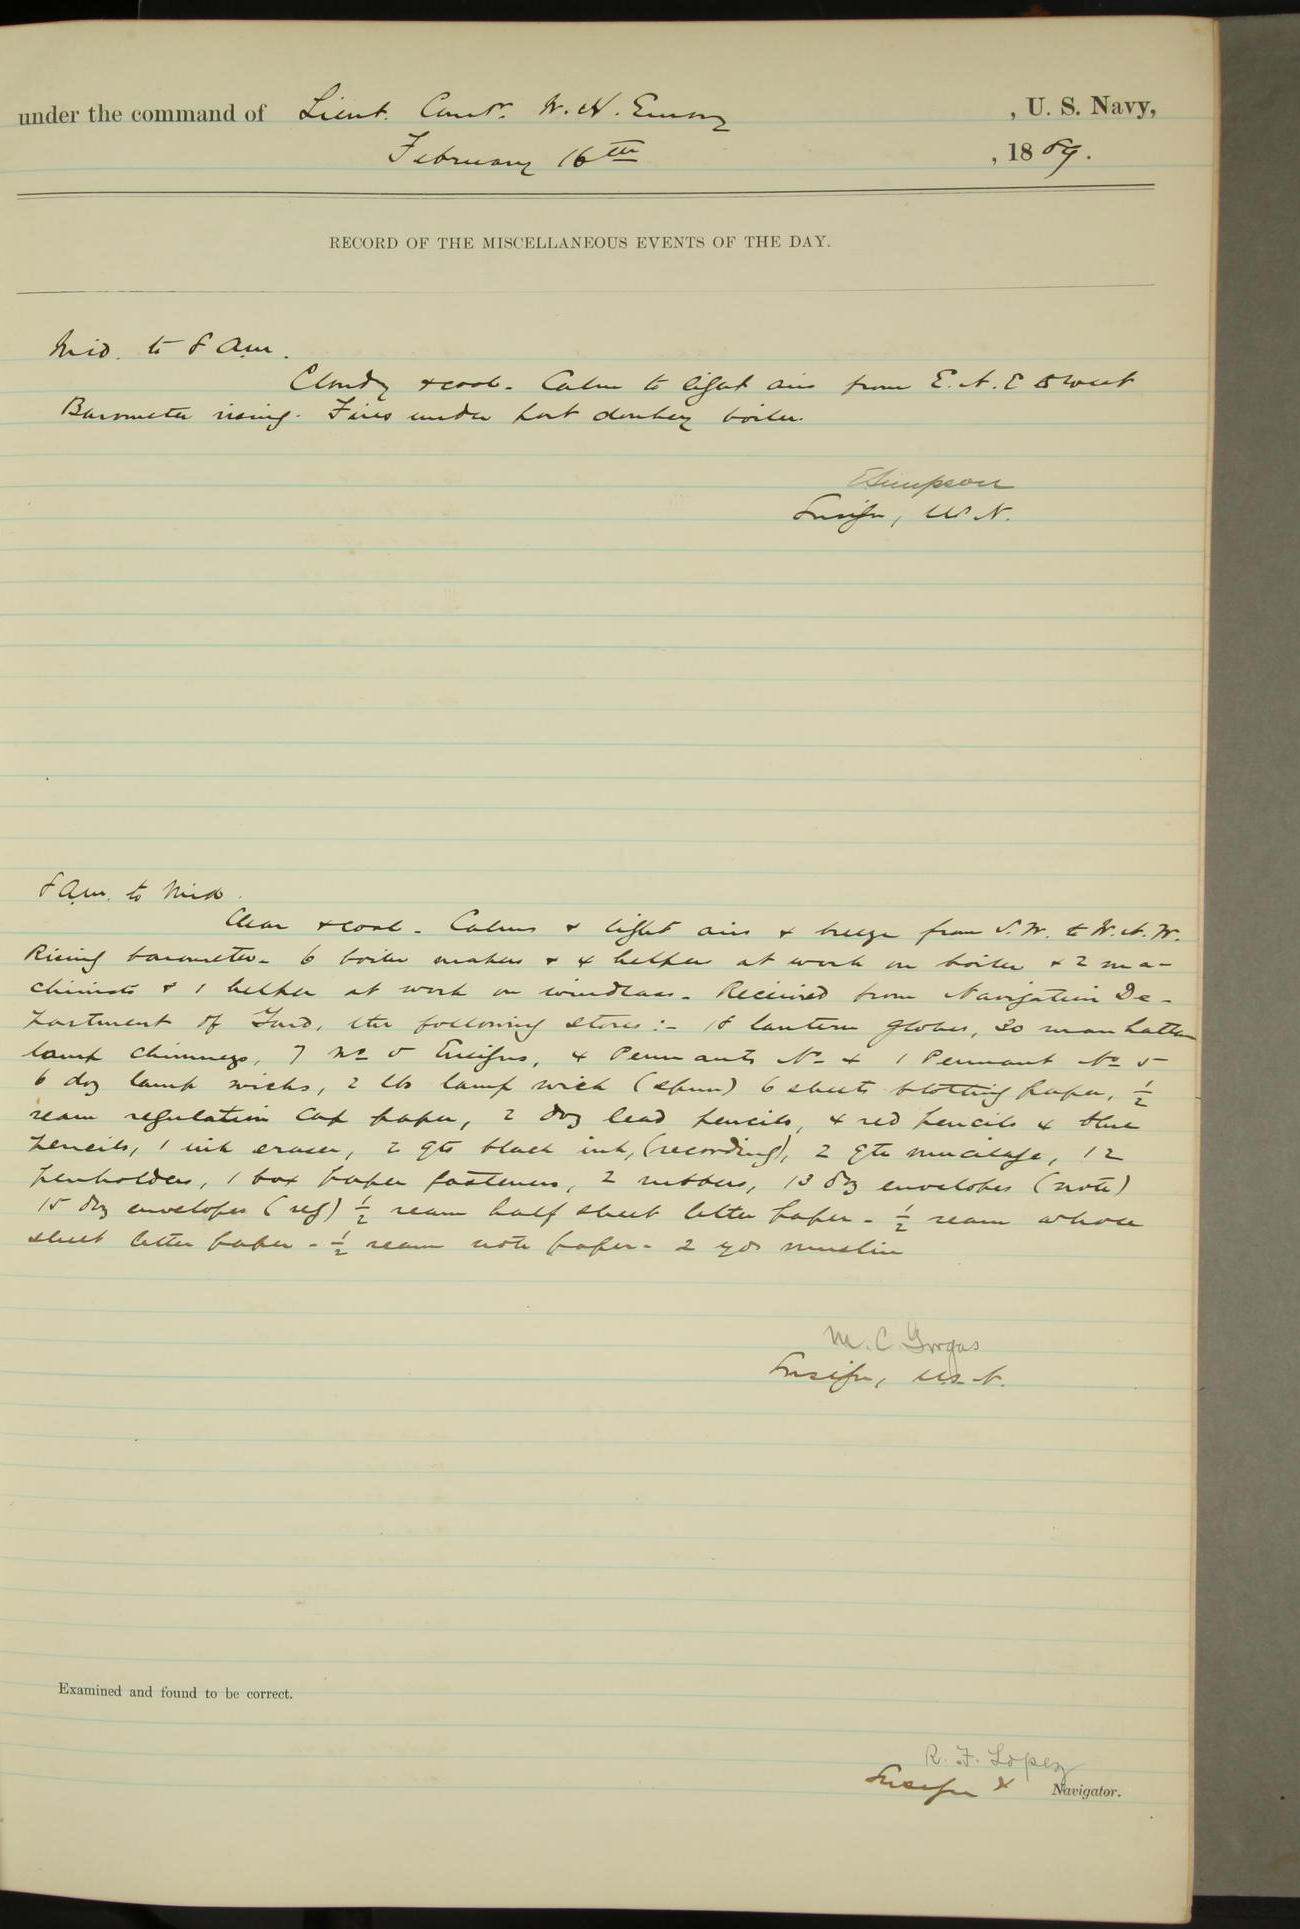 under the command of Lieut. Comdr. W. H. Emory, U. S. Navy,
February 16th, 1889.
RECORD OF THE MISCELLANEOUS EVENTS OF THE DAY.
Mid. to 8 A.m.
Cloudy & cool. Calm to light airs from E.N.E. to West
Barometer rising. Fires under port donkey boiler.
E Simpson
Ensign, U.S.N.
8 A.m. to Mid.
Clear & cool. Calms & light airs & breeze from S.W. to W.N.W.
Rising barometer. 6 boiler makers & 4 helpers at work on boiler & 2 ma-
chinists & 1 helper at work on windlass. Received from Navigation De-
partment of Yard, the following stores:- 18 lantern globes, 30 manhattan
lamp chimneys, 7 No 5 Ensigns, 4 Pennants No 4 1 Pennant No 5
6 doz lamp wicks, 2 lbs lamp wick (spun) 6 sheets blotting paper, ½
ream regulation cap paper, 2 doz lead pencils, 4 red pencils 4 blue
pencils, 1 ink eraser, 2 qts black ink, (recording), 2 qts mucilage, 12
penholders, 1 box paper fasteners, 2 rubbers, 13 doz envelopes (note)
15 doz envelopes (reg) ½ ream half sheet letter paper - ½ ream whole
sheet letter paper - ½ ream note paper - 2 yds muslin
M. C. Gorgas
Ensign, U.S.N.
Examined and found to be correct.
R. F. Lopez
Ensign & Navigator.